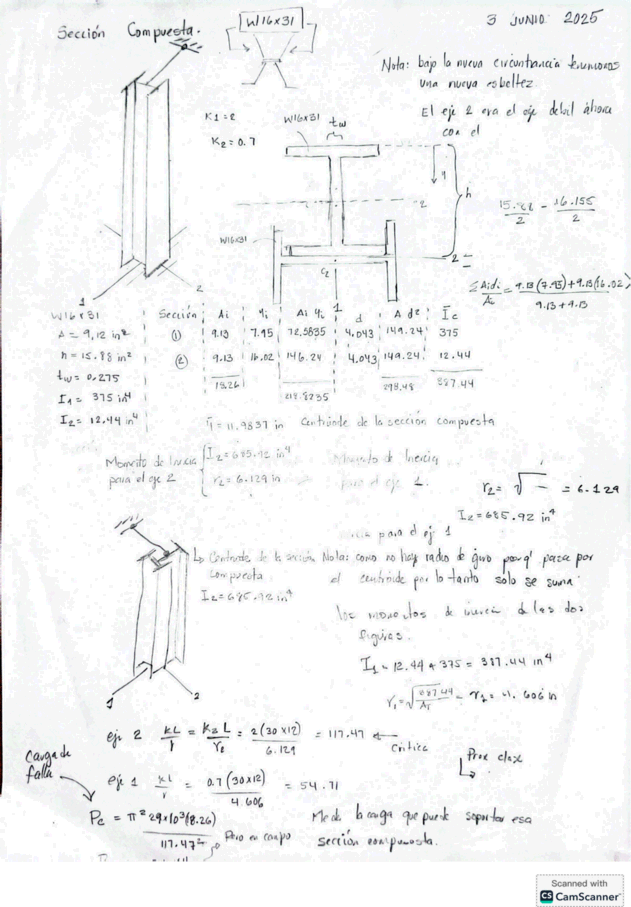 3 JUNIO 2025
Sección Compuesta.
W16x31
Nota: bajo la nueva circunstancia tenemos
una nueva esbeltez
El eje 2 era el eje debil ahora
con el
K1=2
K2=0.7
W16x31
tw
y
h
2
15.88/2 - 16.155/2
W16x31
2
C2
1
1
2
ΣAidi/Ai = 9.13(7.95)+9.13(16.02)/9.13+9.13
W16x31
A = 9,12 in²
h = 15.88 in²
tw = 0.275
I1 = 375 in⁴
I2 = 12.44 in⁴
Sección Ai Yi Ai Yi d A d² Ic
① 9.13 7.95 72.5835 4.043 149.24 375
② 9.13 16.02 146.24 4.043 149.24 12.44
18.26 218.8235 298.48 387.44
ȳ = 11.9837 in Centroide de la sección compuesta
Momento de Inercia
para el eje 2
I2=685.92 in⁴
r2=6.129 in
Momento de Inercia
para el eje 1.
r2= √ = 6.129
I2=685.92 in⁴
para el ej 1
Centroide de la sección
Compuesta
I2=685.92 in⁴
Nota: como no hay radio de giro porq' pasa por
el centroide por lo tanto solo se suma
los momentos de inercia de las dos
figuras.
I1=12.44+375=387.44 in⁴
r1=√387.44/AT = r1=4.606 in
1
2
eje 2 KL/r = K2 L/r2 = 2(30x12)/6.129 = 117.47 ←
Critica
Prox clase
Carga de
falla
eje 1 kl/r = 0.7(30x12)/4.606 = 54.71
Pc = π² 29x10³(8.26)/117.47²
Pero en campo
Me da la carga que puede soportar esa
sección compuesta.
Scanned with
CS CamScanner